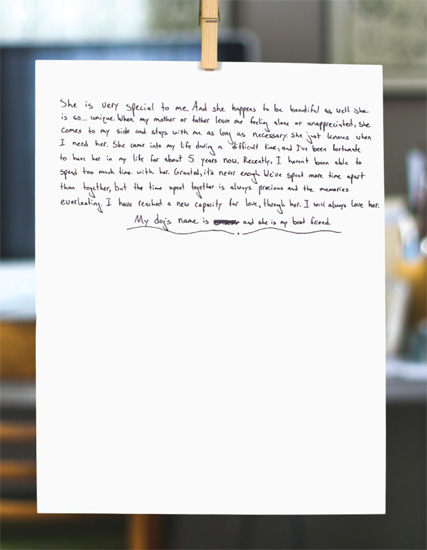 She is very special to me. And she happens to be beautiful as well. She
is so... unique. When my mother or father leave me feeling alone or unappreciated, she
comes to my side and stays with me as long as necessary. She just knows when
I need her. She came into my life during a difficult time, and I've been fortunate
to have her in my life for about 5 years now. Recently, I haven't been able to
spend too much time with her. Granted, it's never enough. We've spent more time apart
than together, but the time spent together is always precious and the memories
everlasting. I have reached a new capacity for love, through her. I will always love her.
My dog's name is and she is my best friend.